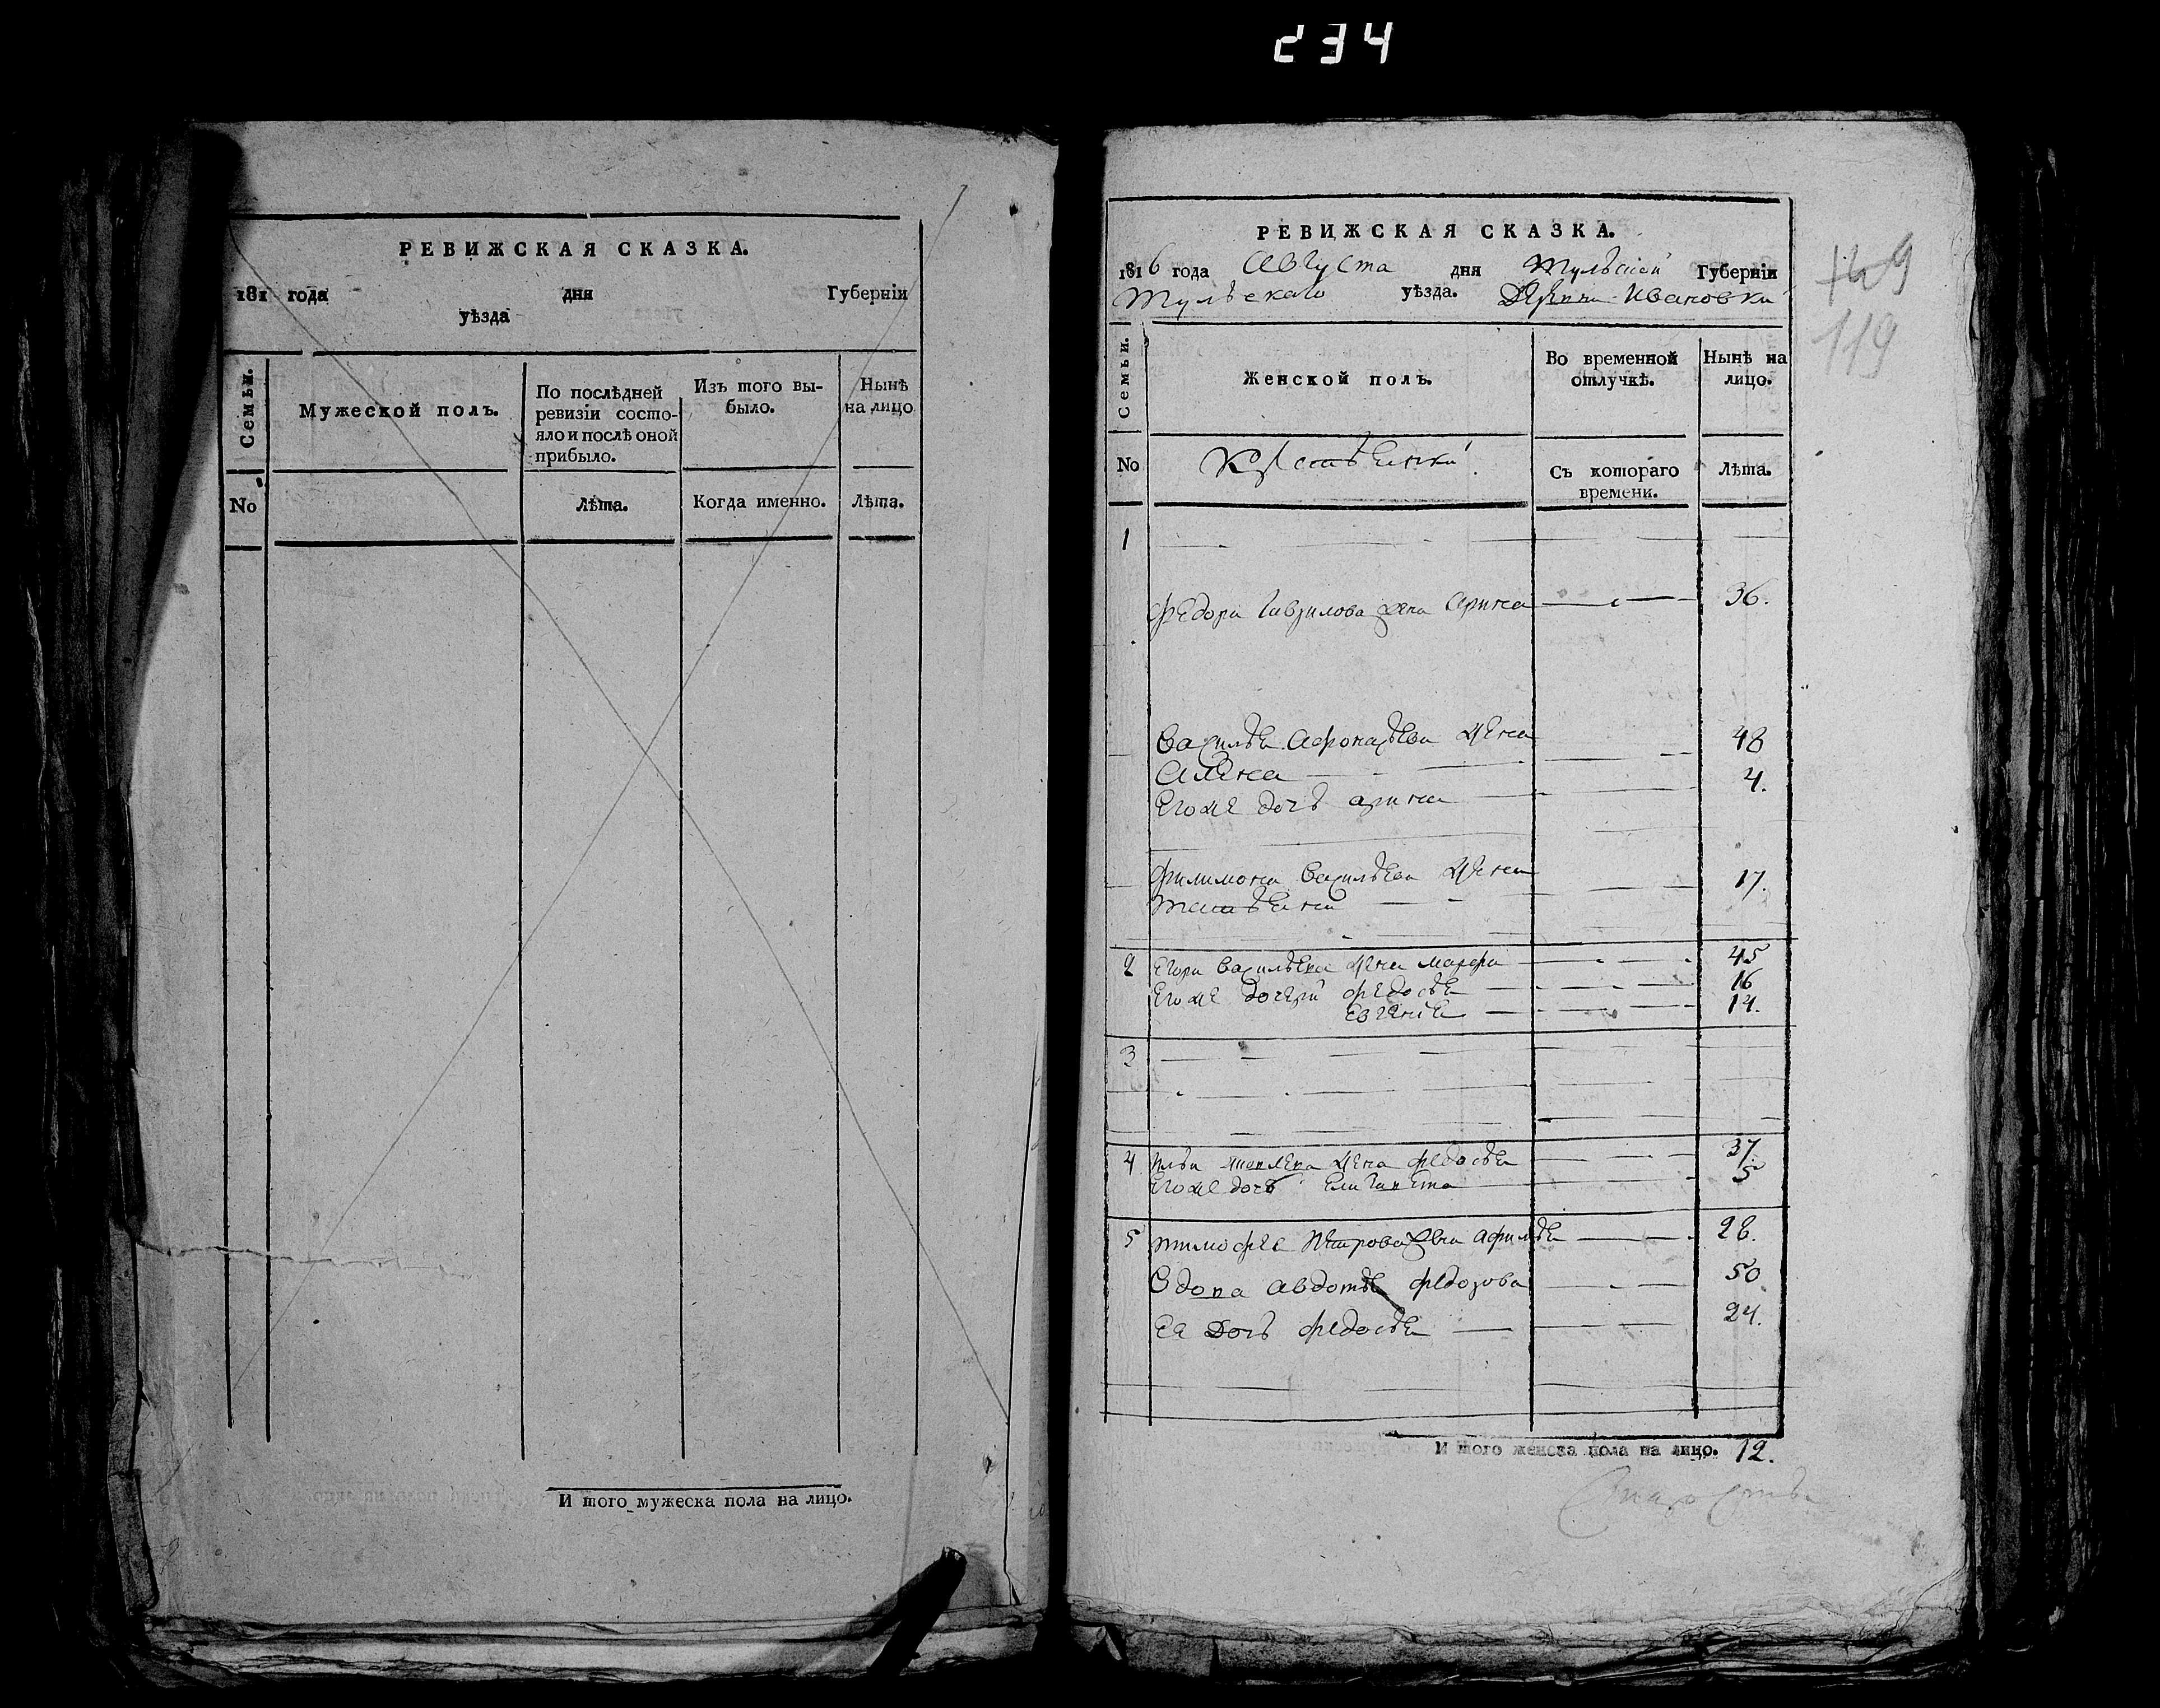 234
РЕВИЖСКАЯ СКАЗКА.
181 года дня Губерніи
уѣзда
Семьи.
Мужеской полъ.
По послѣдней ревизіи состо-яло и послѣ оной прибыло.
Изъ того вы-было.
Нынѣ на лицо
No
Лѣта.
Когда именно.
Лѣта.
И того мужеска пола на лицо.
РЕВИЖСКАЯ СКАЗКА.
1816 года Августа дня Тульской Губерніи
Тульскаго уѣзда. Ивановки
149
119
Семьи.
Женской полъ.
Во временной отлучкѣ.
Нынѣ на лицо.
No
Съ котораго времени.
Лѣта.
1
Федора Гаврилова жена Арина 36.
Василья Афонасьева жена 48
Алена
Егоже дочь арина 4.
Филимона Васильева жена 17.
татьяна
2 Егора Васильева жена марфа 45
Егоже дочери федосья 16
Евгенья 14.
3
4 Ильи жена федосья 37.
Егоже дочь Елизавета 5
5 тимофея Петрова жена афимья 28.
Вдова авдотья федорова 50
Ея дочь федосья 24.
И того женска пола на лицо. 12.